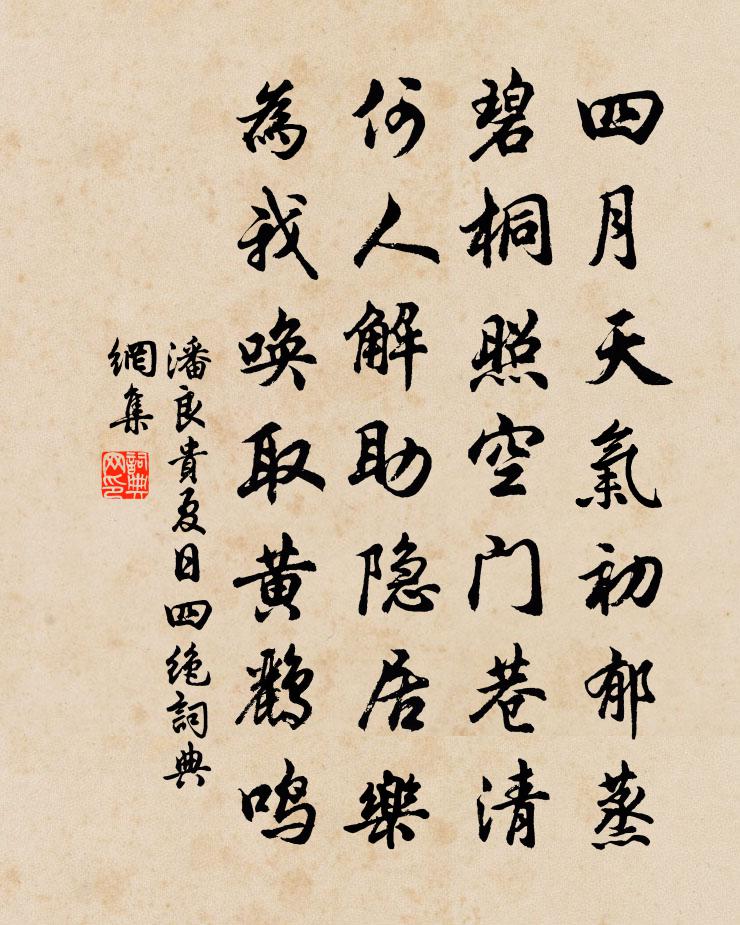 四月天氣初郁蒸
碧桐照空门巷清
何人解助隐居樂
為我唤取黄鹂鸣
潘良貴夏日四絶詞典
網集
詞典
网印